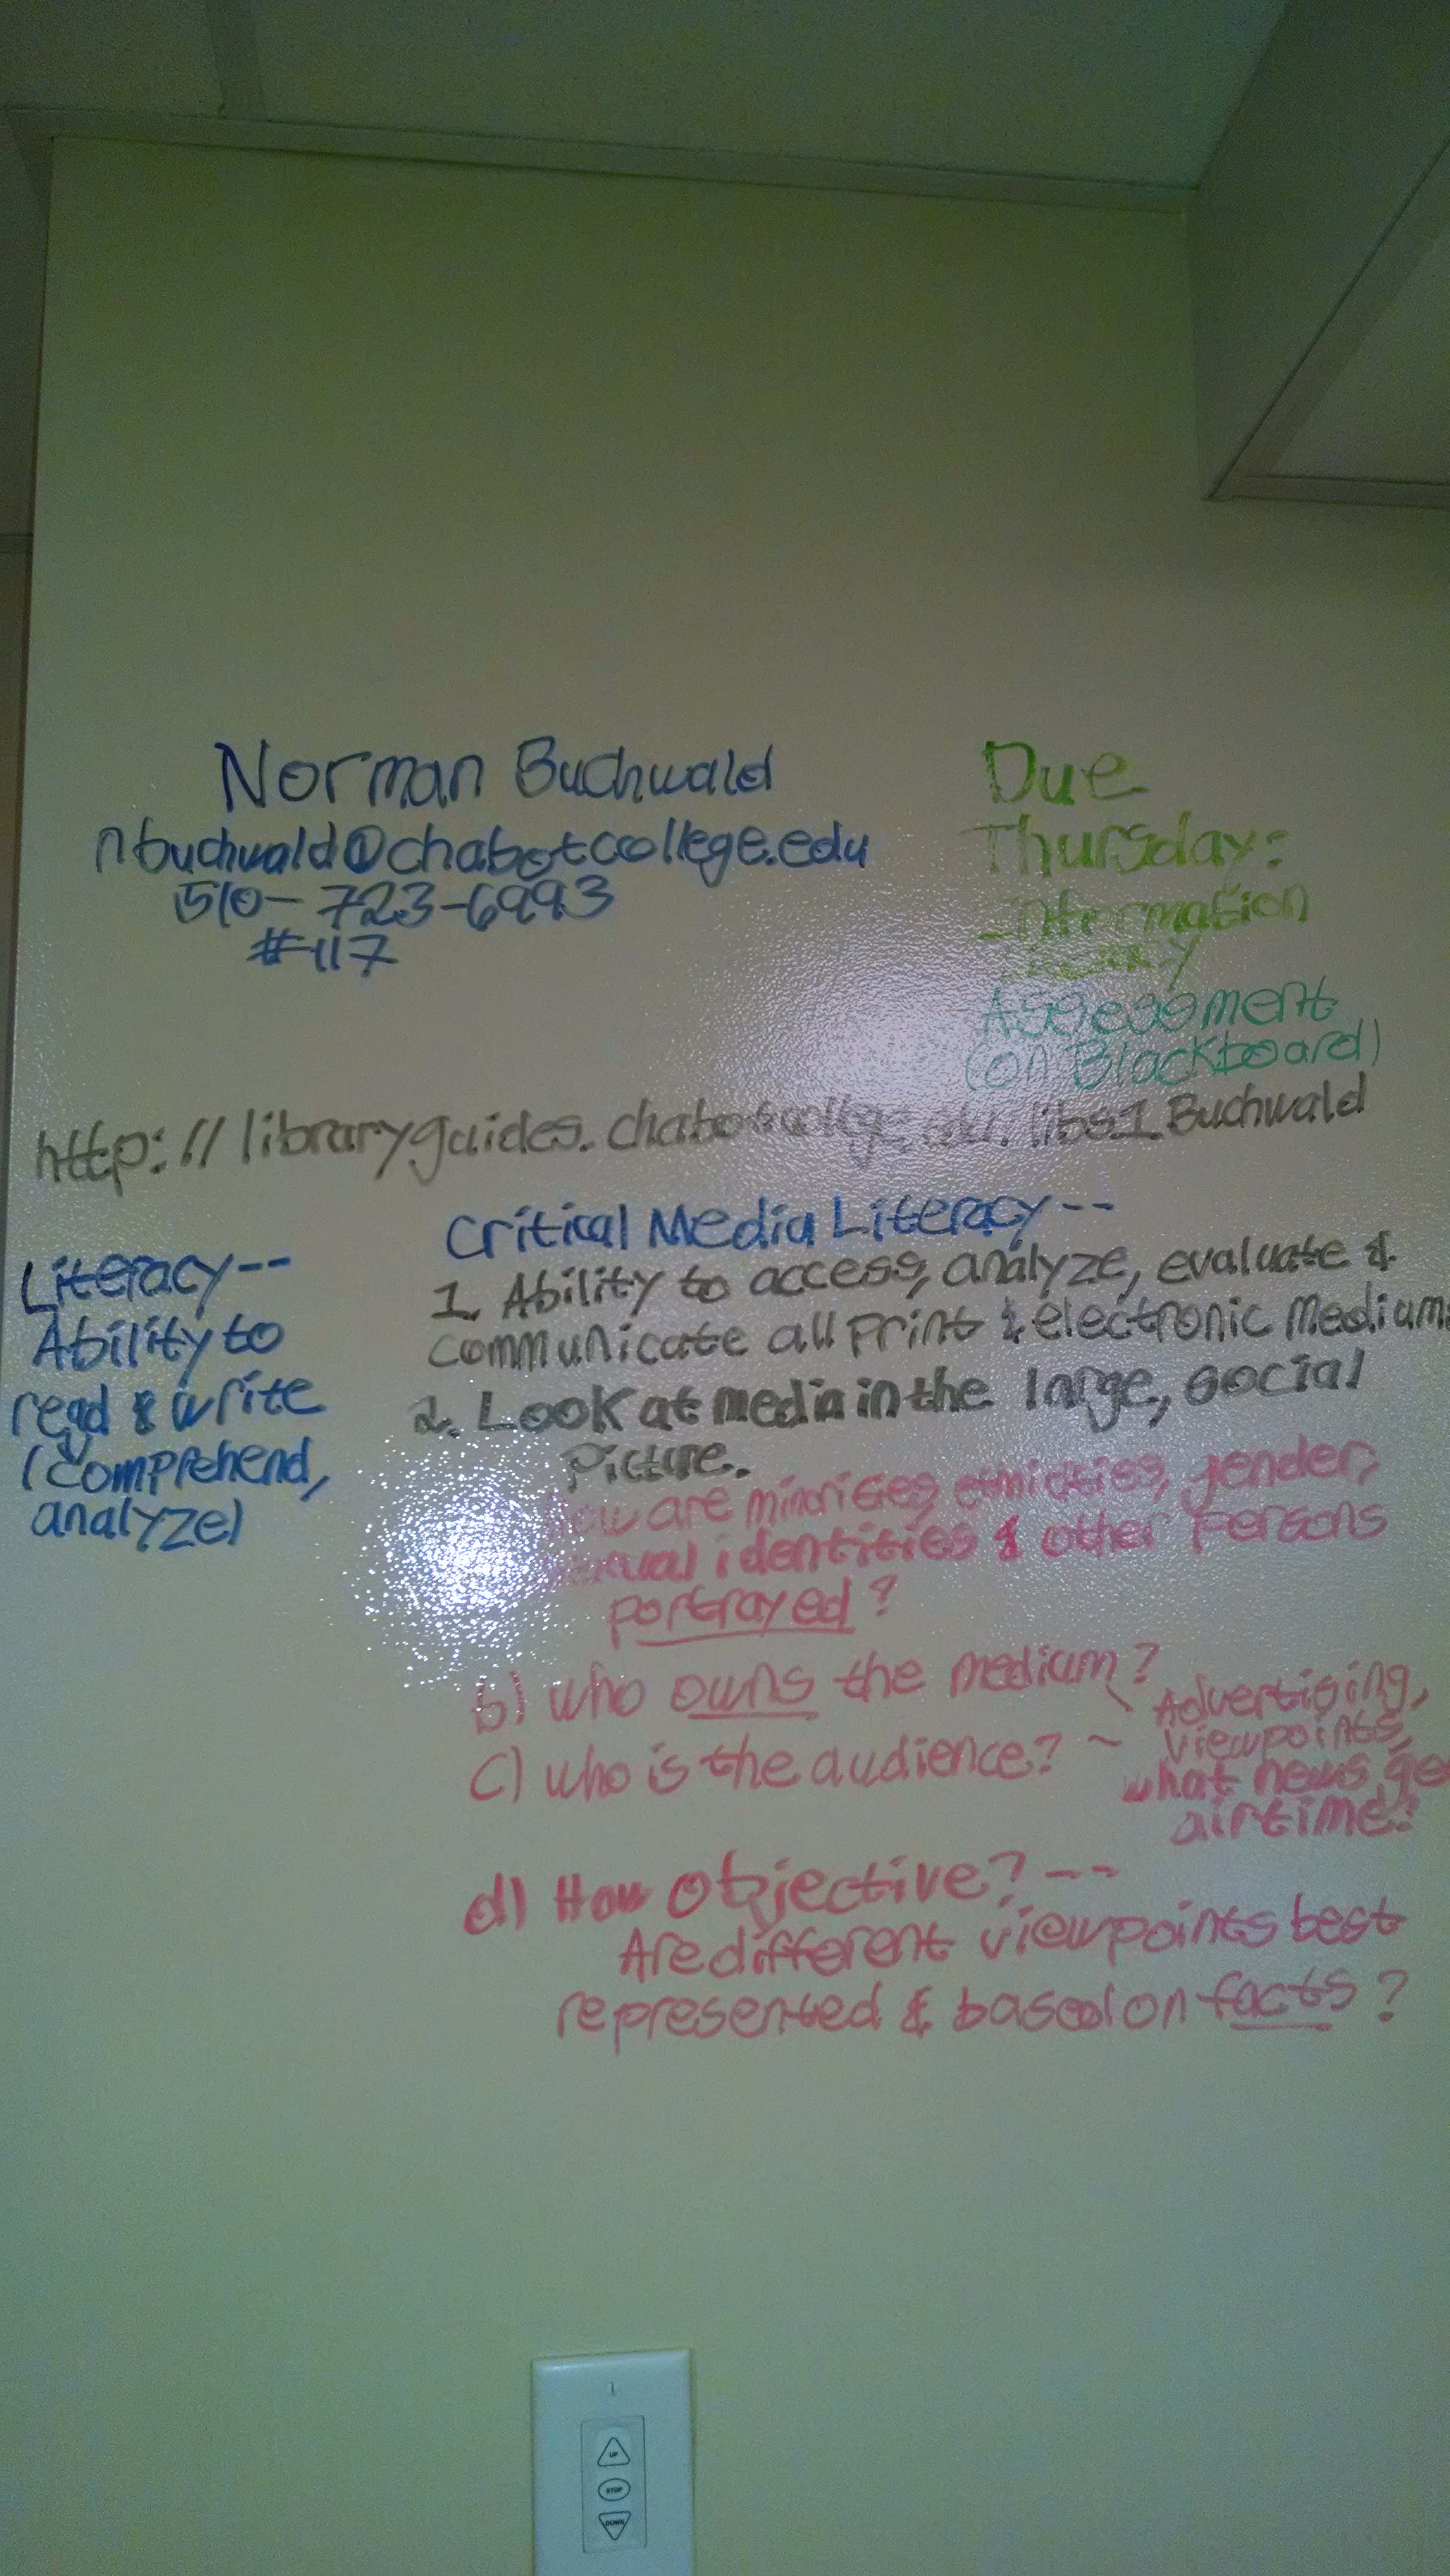 Norman Buchwald
nbuchwald@chabotcollege.edu
510-723-6993
#117
Due
Thursday:
Information
Assessment
(on Blackboard)
http://libraryguides.chabotcollege.edu. libs1.Buchwald
Literacy--
Ability to
read & write
(comprehend,
analyze)
Critical Media Literacy--
1. Ability to access, analyze, evaluate &
communicate all print & electronic Mediums
2. Look at media in the large, social
Picture.
How are minorities, ethnicities, gender,
identities & other Persons
portrayed?
b) who owns the medium?
c) who is the audience? ~
Advertising,
Viewpoints,
what news ge
airtime?
d) How objective? --
Are different viewpoints best
represented & based on facts?
UP
STOP
DOWN